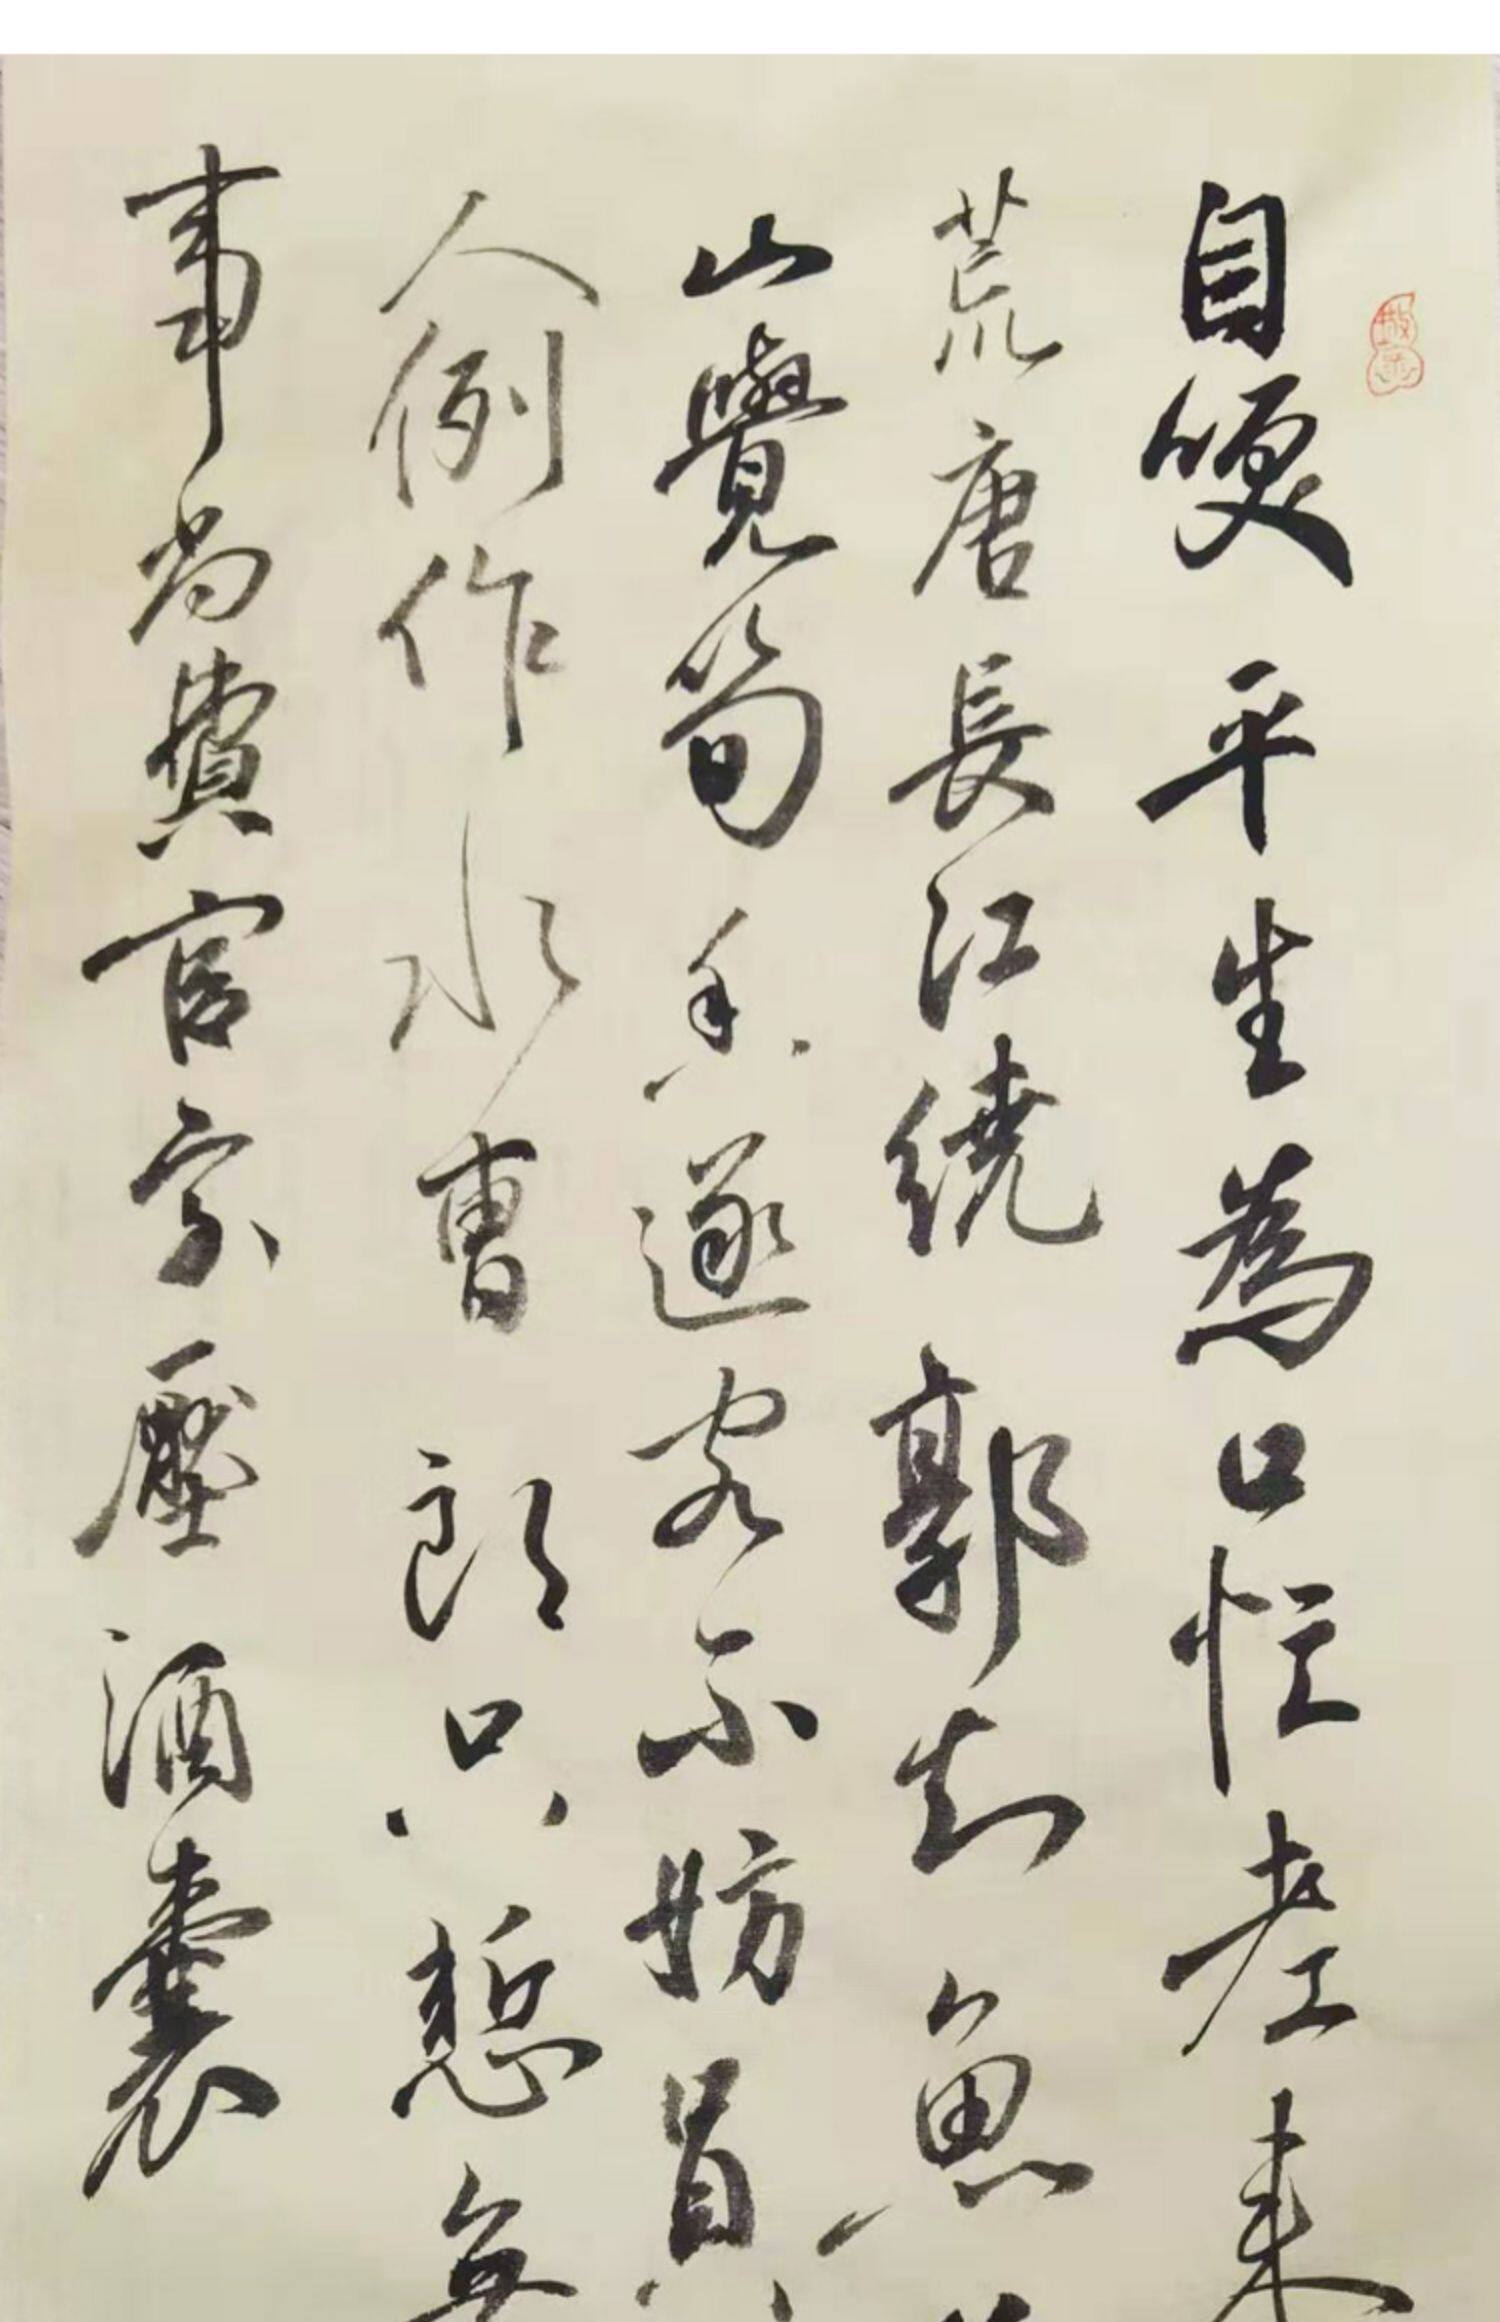 自笑平生為口忙老来
荒唐長江繞郭知魚
山覺筍香逐客不妨員
人例作水曹郎只慙無
事尚費官家壓酒囊